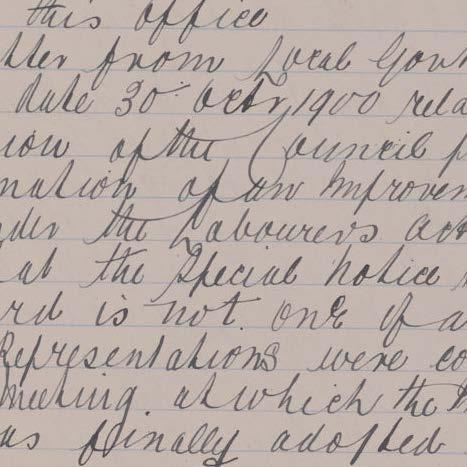 this office
tter from Local Gov
date 30th Octr 1900 rela
ion of the Council p
nation of an Improvem
nder the Labourers act
at the Special notice
rd is not one of a
Representations were co
meeting at which the
as finally adopted